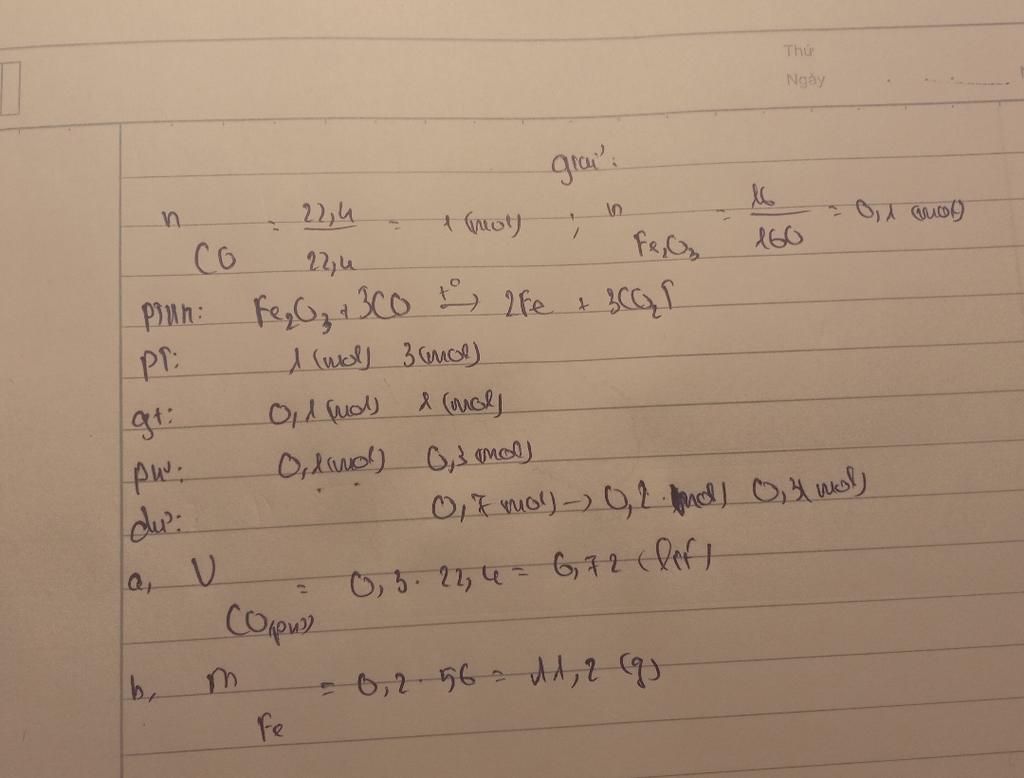 Thứ
Ngày
giải:
n CO = 22,4 / 22,4 = 1 (mol) ; n Fe2O3 = 16 / 160 = 0,1 (mol)
PTHH: Fe2O3 + 3CO t° → 2Fe + 3CO2↑
PT: 1 (mol) 3 (mol)
gt: 0,1 (mol) 1 (mol)
pư: 0,1 (mol) 0,3 (mol)
dư: 0,7 mol) → 0,2 mol) 0,3 mol)
a, V CO(pư) = 0,3 . 22,4 = 6,72 (lít)
b, m Fe = 0,2 . 56 = 11,2 (g)